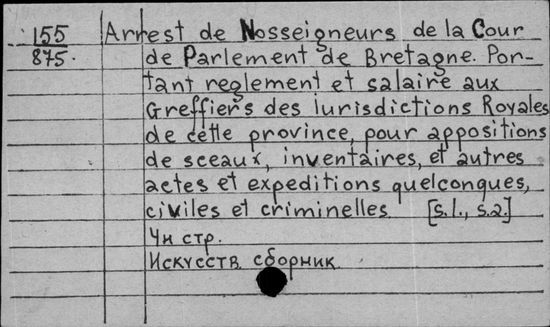 155
875.
Arrest de Nosseigneurs de la Cour
de Parlement de Bretagne. Por-
tant reglement et salaire aux
Greffiers des iurisdictions Royales
de cette province, pour appositions
de sceaux, inventaires, et autres
actes et expeditions quelconques,
civiles et criminelles [s.l., s.a.]
4н стр.
Искусств. сборник.